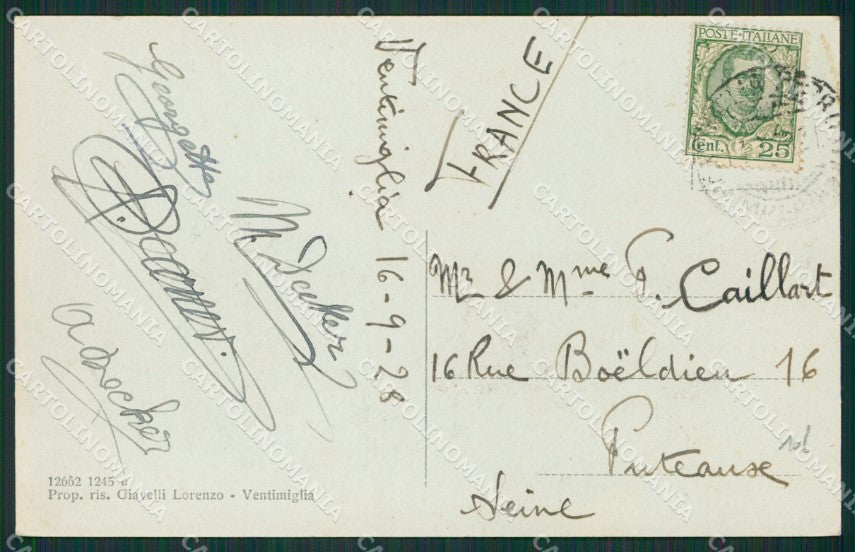 Ventimiglia 16-9-28
Georgette
M. Decker
A Decker
FRANCE
POSTE·ITALIANE
Cent. 25
Mr & Mme P. Caillart
16 Rue Boëldieu 16
Puteaux
Seine
12662 1245 a
Prop. ris. Giavelli Lorenzo - Ventimiglia
CARTOLINOMANIA